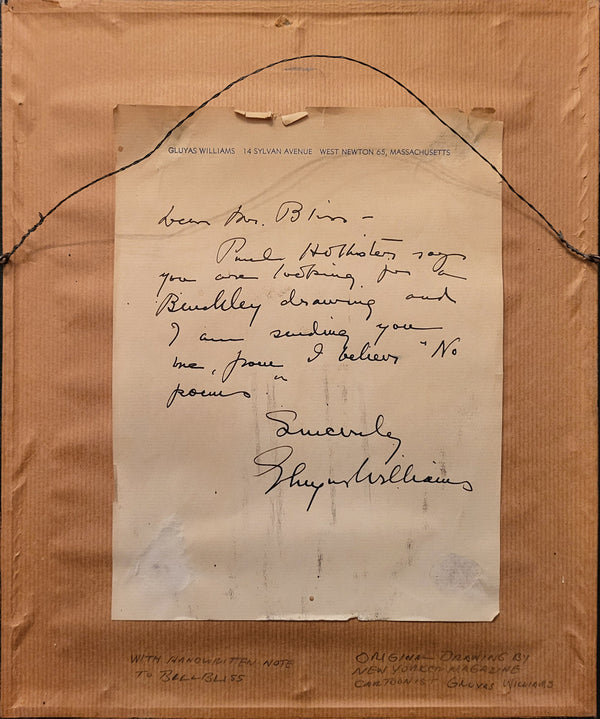 GLUYAS WILLIAMS 14 SYLVAN AVENUE WEST NEWTON 65, MASSACHUSETTS
Dear Mr. Bliss –
Paul Hollister says
you are looking for a
Benchley drawing and
I am sending you
one, from I believe "No
poems."
Sincerely
Gluyas Williams
WITH HANDWRITTEN NOTE
TO BILL BLISS
ORIGINAL DRAWING BY
NEW YORKER MAGAZINE
CARTOONIST GLUYAS WILLIAMS